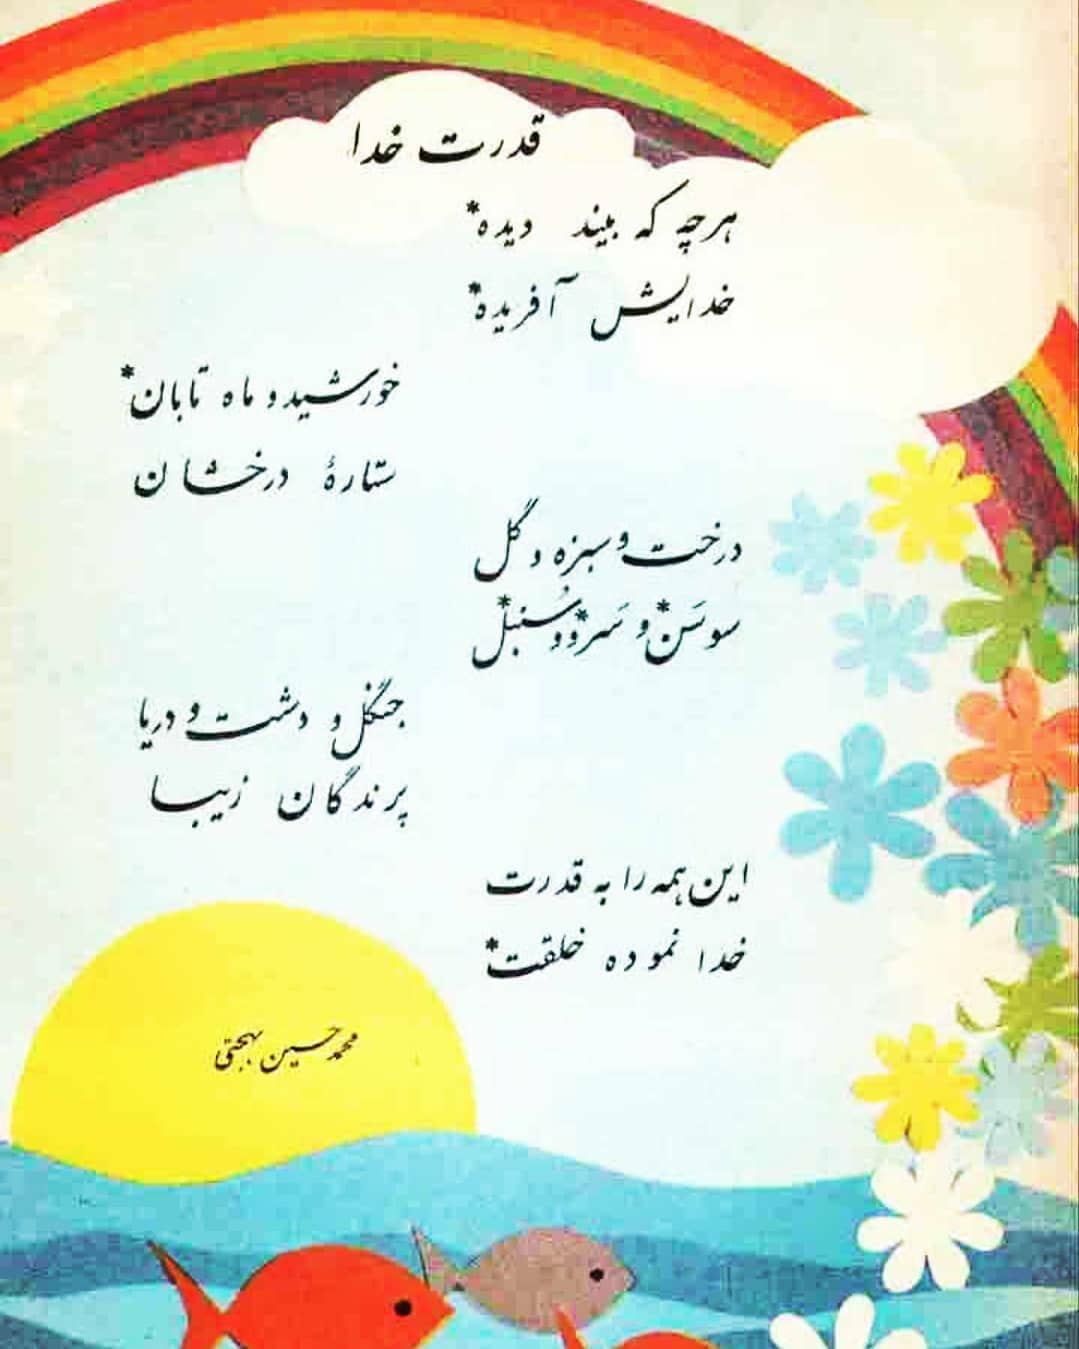 قدرت خدا
هرچه که بیند دیده*
خدایش آفریده*
خورشید و ماه تابان*
ستارهٔ درخشان
درخت و سبزه و گل
سوسَن* و سَرو* و سُنبل*
جنگل و دشت و دریا
پرندگان زیبا
این همه را به قدرت
خدا نموده خلقت*
محمدحسین بهجتی